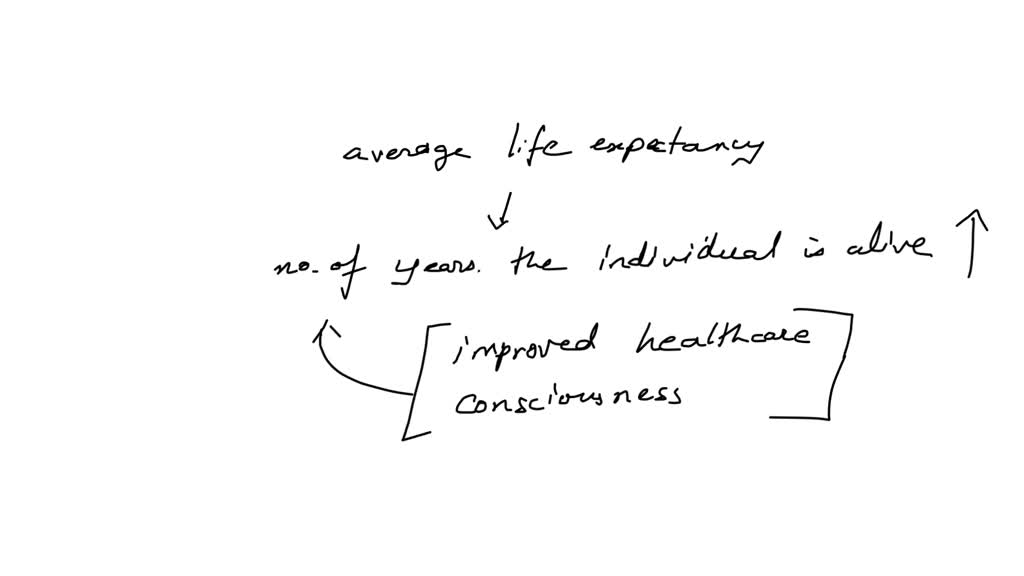 average life expectancy
no. of years. the individual is alive
improved healthcare
consciousness